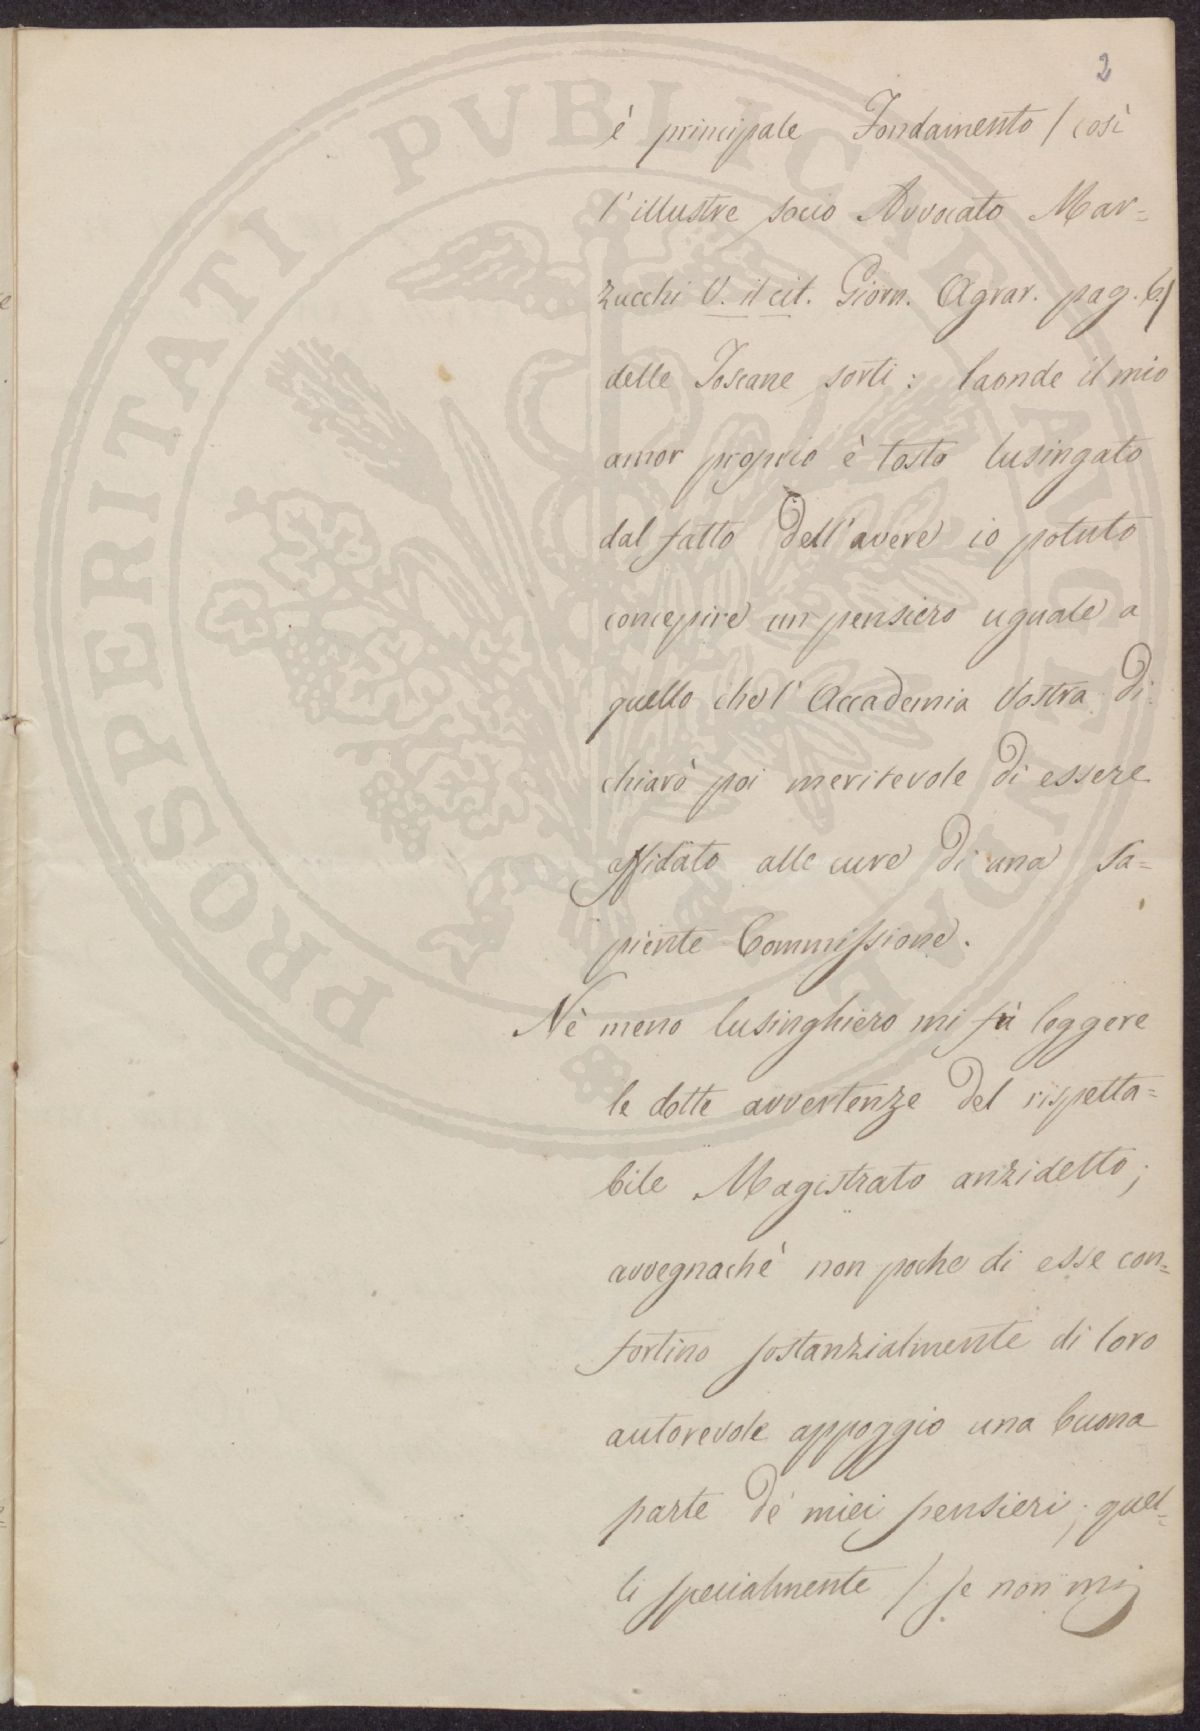 2
è principale Fondamento / così
l'illustre socio Avvocato Mar=
zucchi V. il cit. Giorn. Agrar. pag. 6./
delle Toscane sorti: laonde il mio
amor proprio è tosto lusingato
dal fatto dell'avere io potuto
concepire un pensiero uguale a
quello che l'Accademia Vostra di
chiarò poi meritevole di essere
affidato alle cure di una Sa=
piente Commissione.
Nè meno lusinghiero mi fù leggere
le dotte avvertenze del rispetta=
bile Magistrato anzidetto;
avvegnachè non poche di esse con=
fortino sostanzialmente di loro
autorevole appoggio una buona
parte de' miei pensieri; quel=
li specialmente / se non mi
PROSPERITATI PVBLICAE AVGENDAE